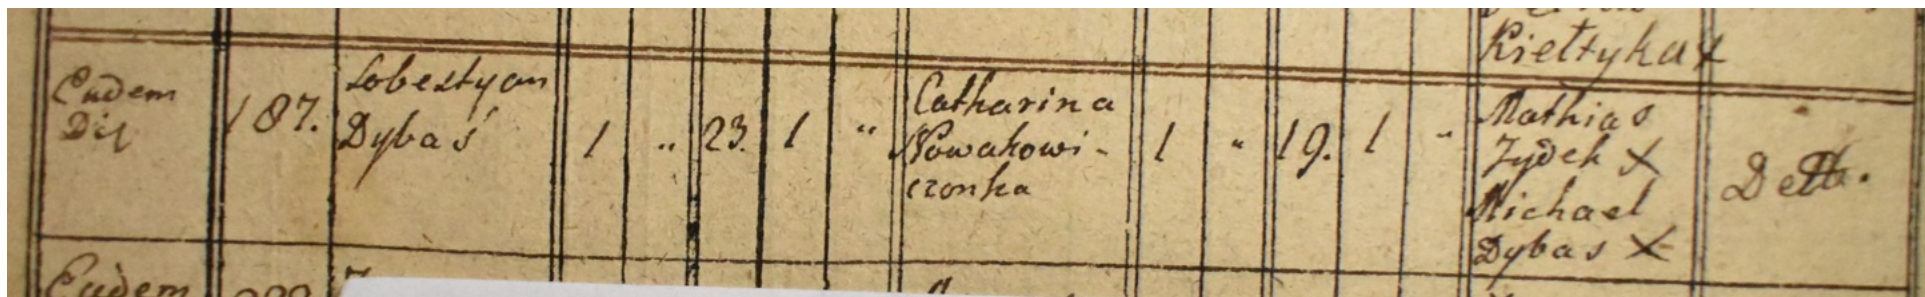 Kiełtyka x
Eadem
Die
187.
Sobestyan
Dybaś
1 " 23. 1 "
Catharina
Nowakowi-
czonka
1 " 19. 1 "
Mathias
Zydek X
Michael
Dybas X
Dett.
Eadem